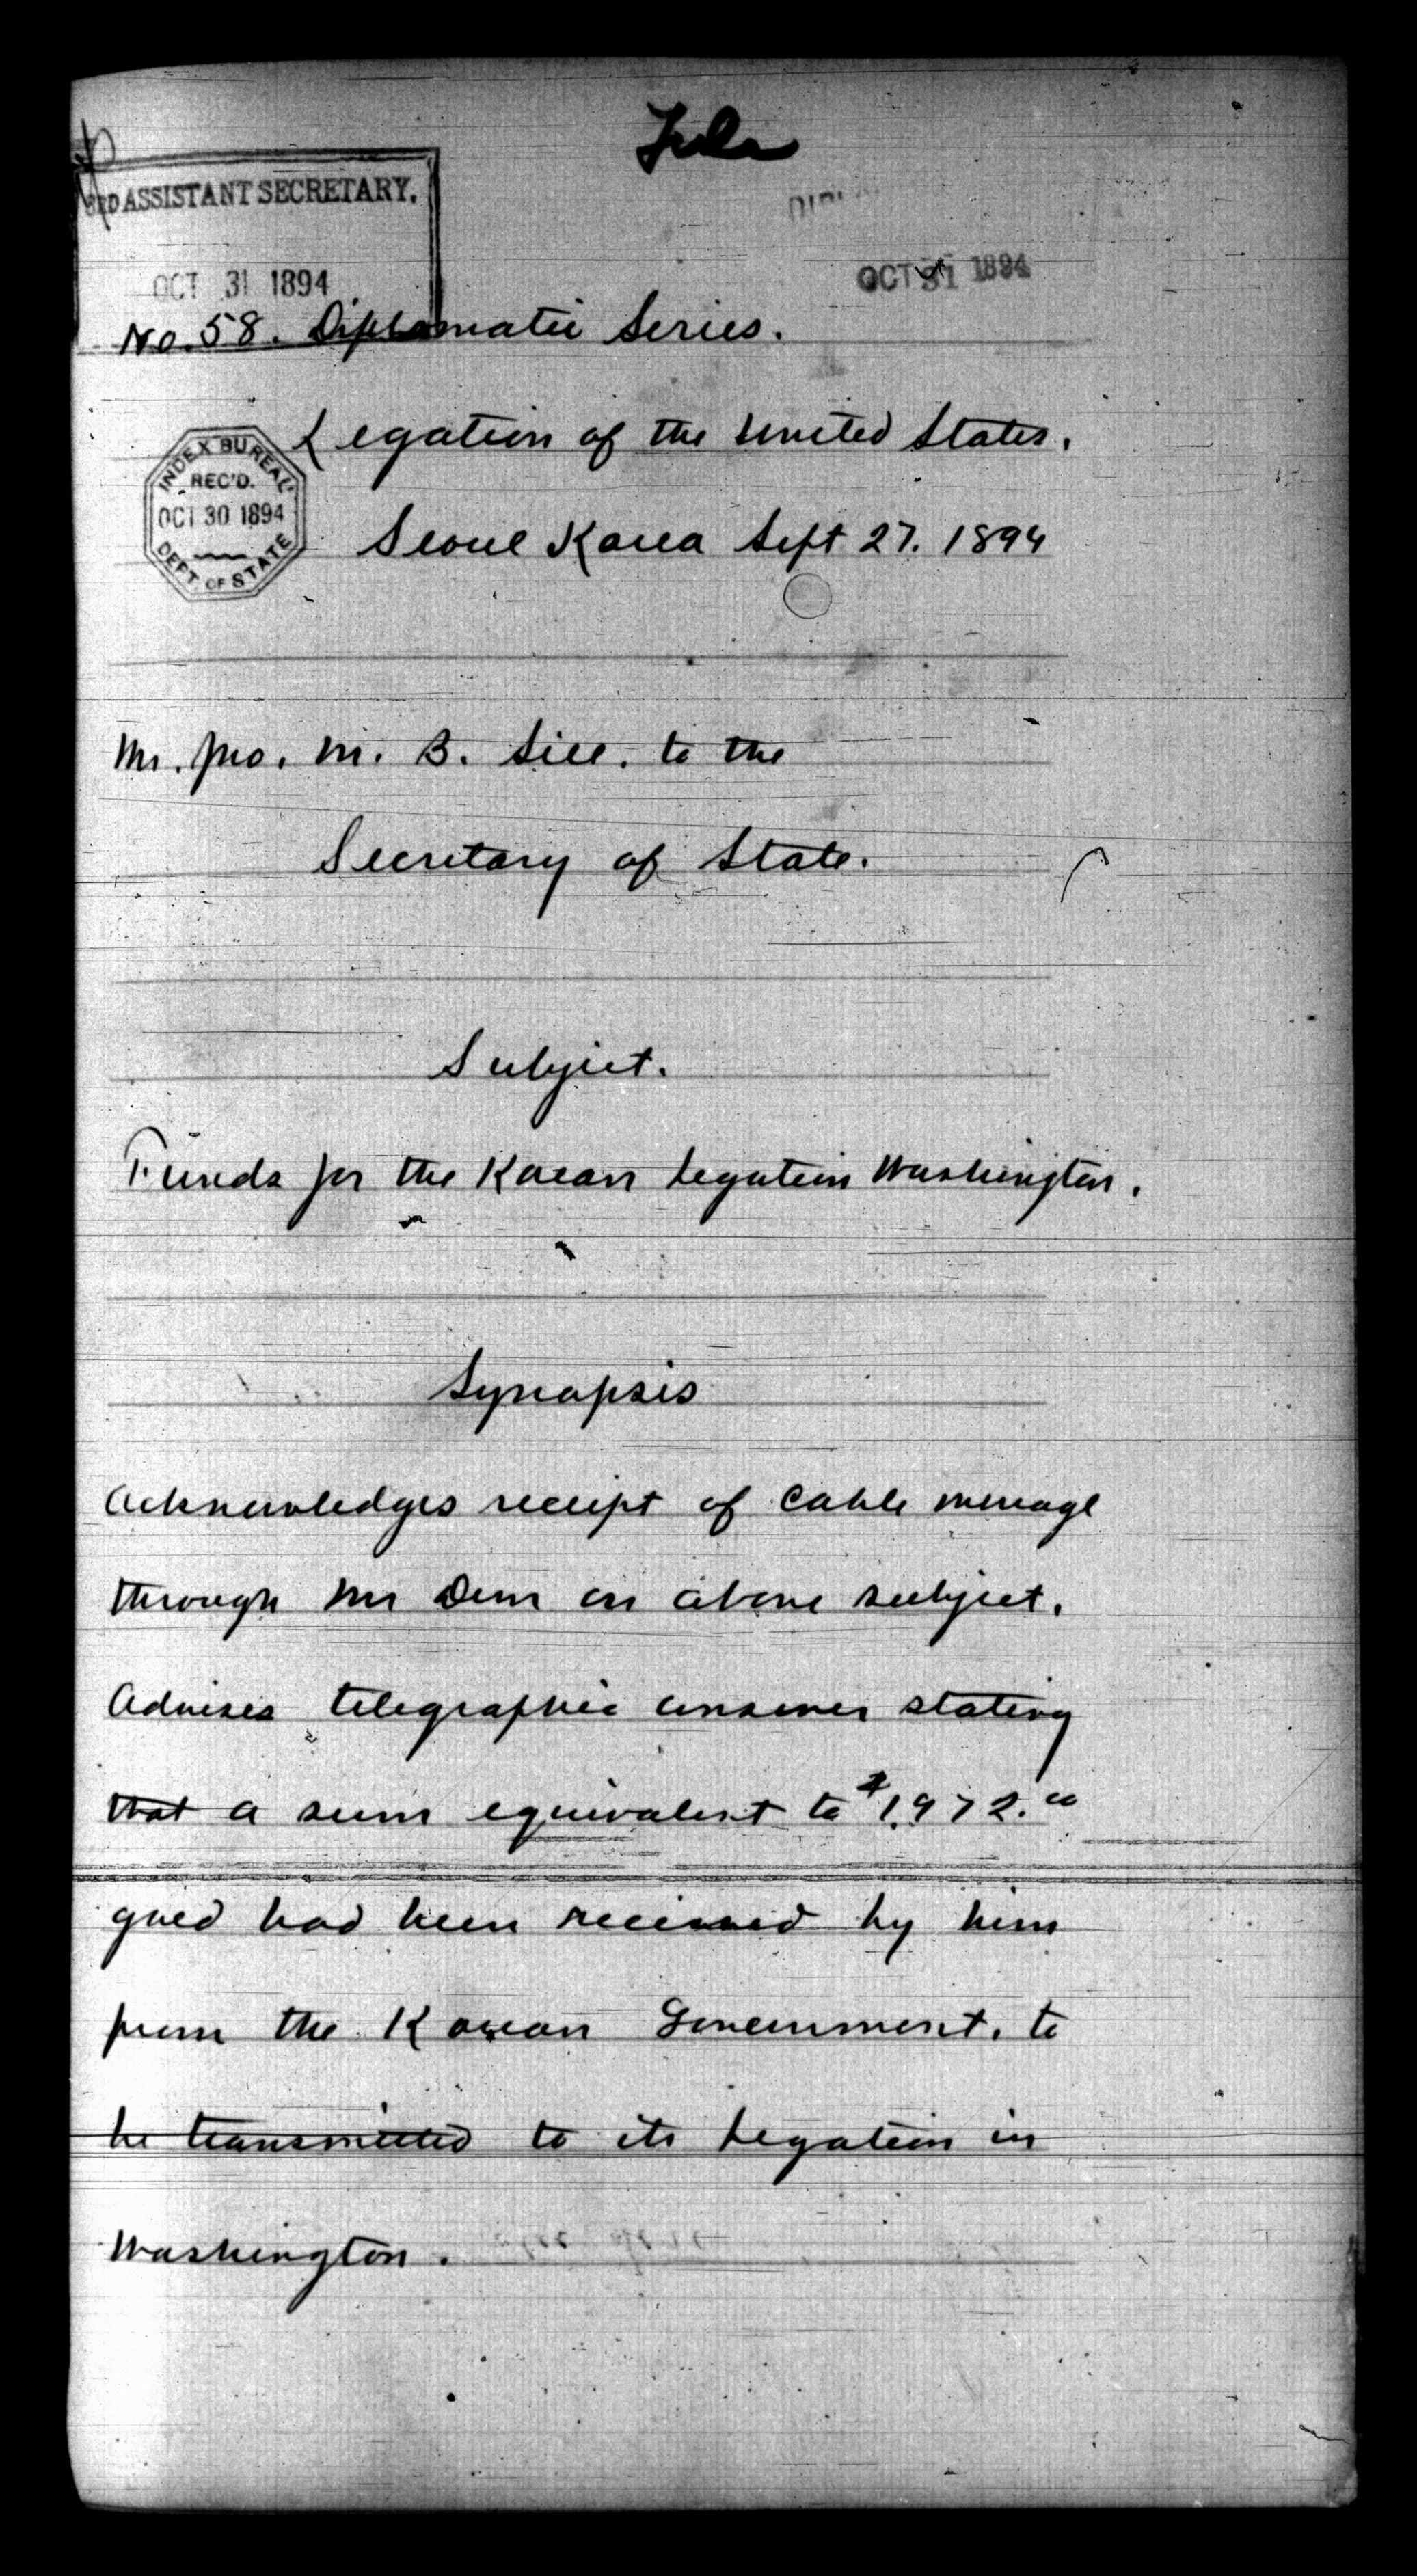 File
3RD ASSISTANT SECRETARY.
OCT 31 1894
OCT 31 1894
No. 58. Diplomatic Series.
Legation of the United States.
INDEX BUREAU
REC'D.
OCT 30 1894
DEPT. OF STATE
Seoul Korea Sept 27. 1894
Mr. Jno. M. B. Sill. to the
Secretary of State.
Subject.
Funds for the Korean Legation Washington.
Synopsis
Acknowledges receipt of cable message
through Mr Denn on above subject.
Advises telegraphic answer stating
that a sum equivalent to $1,972.00
gold had been received by him
from the Korean Government. to
be transmitted to its Legation in
Washington.